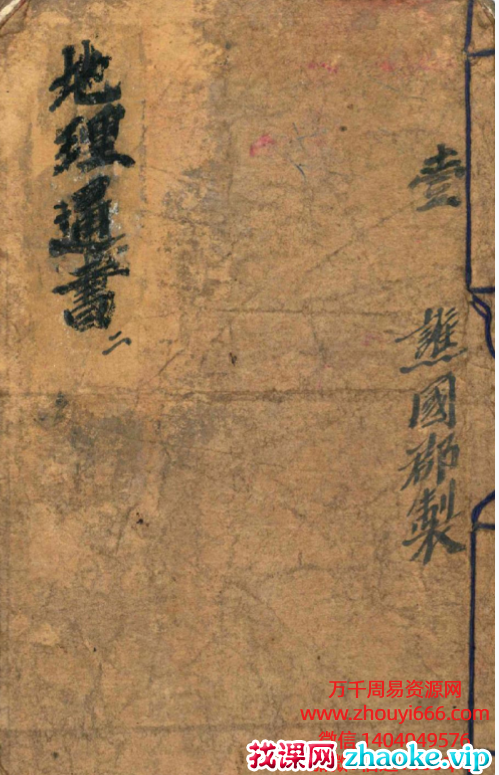 地理通書
二
壹
譙國郡製
万千周易资源网
www.zhouyi666.com
微信1404049576
找课网zhaoke.vip